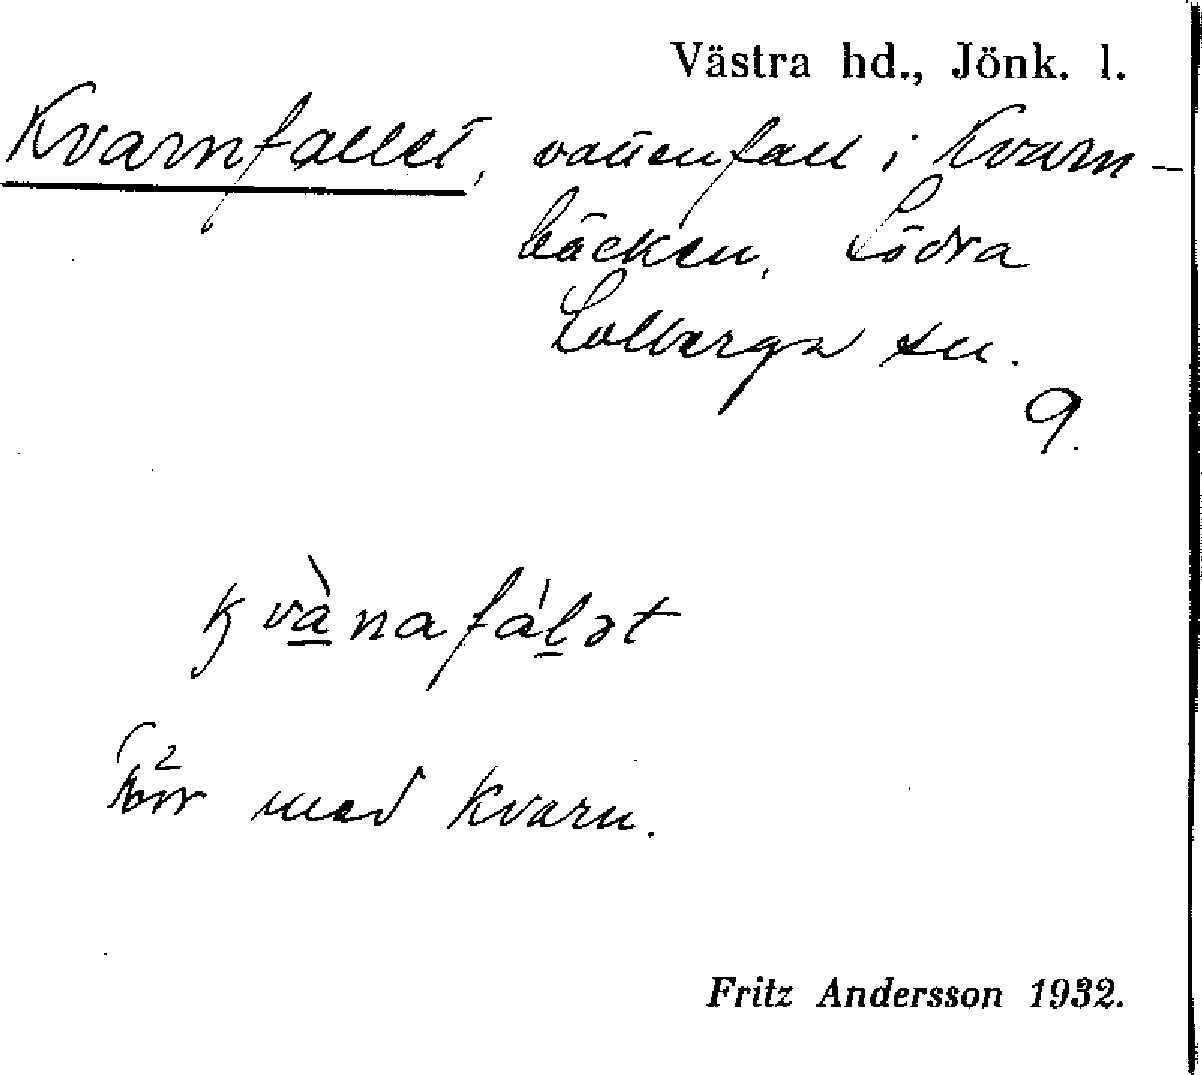 Västra hd., Jönk. l.
Kvarnfallet, vattenfall i Kvarn-
bäcken, Södra
Solberga sn.
9.
kvànafálət
med kvarn.
Fritz Andersson 1932.